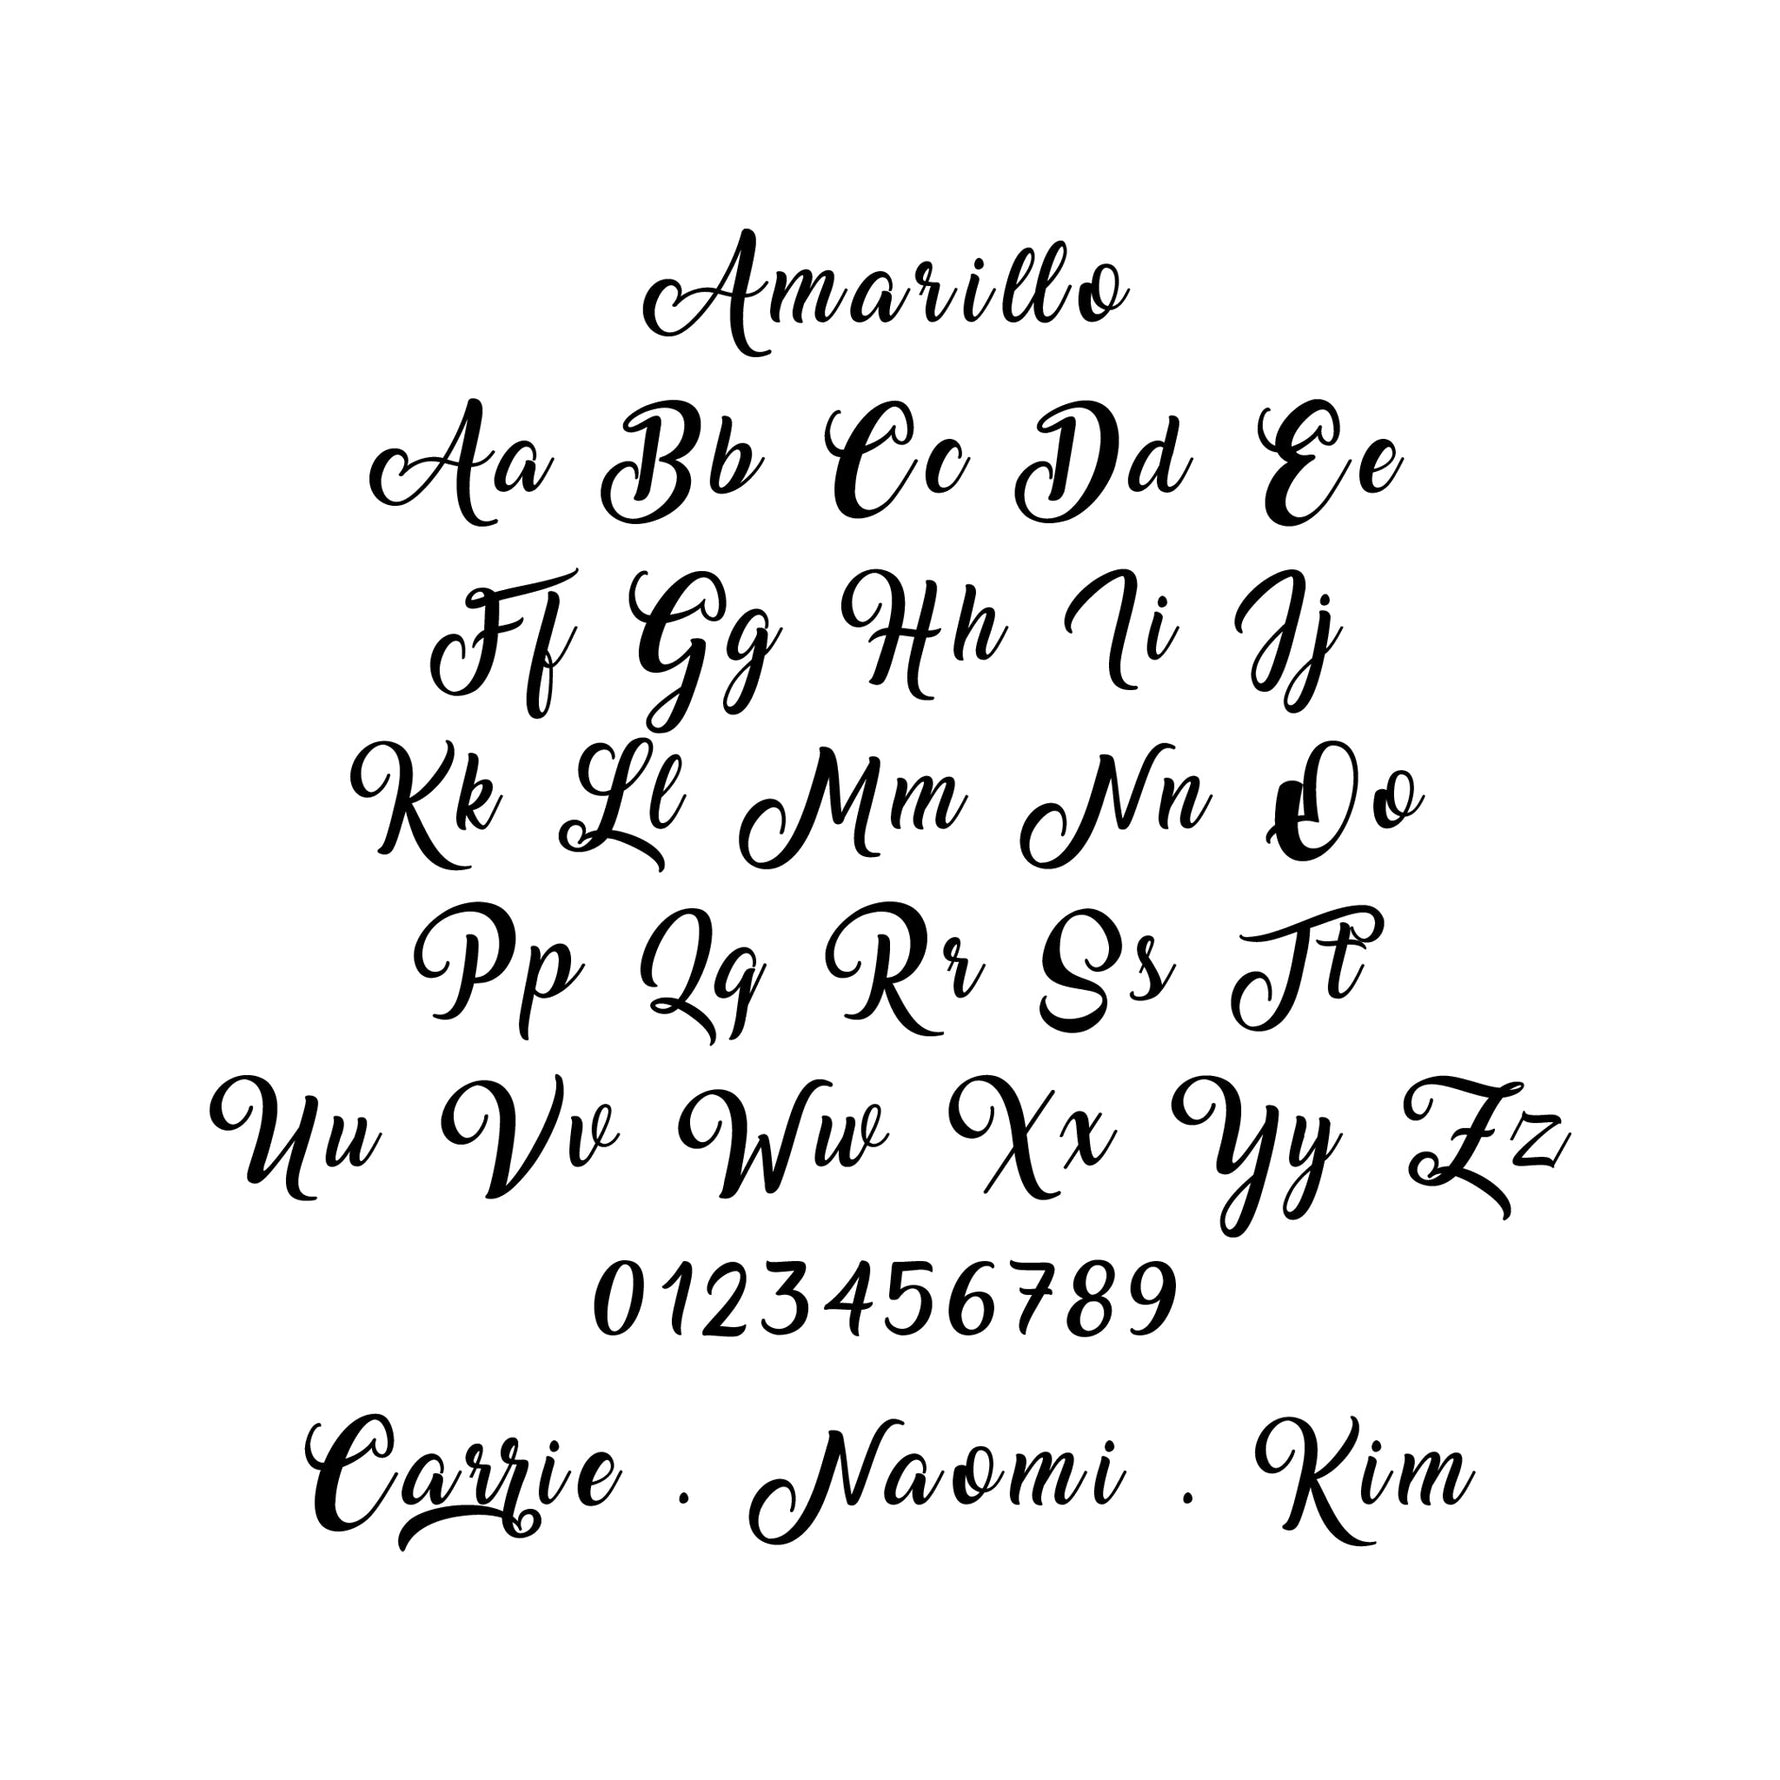 Amarillo
Aa Bb Cc Dd Ee
Ff Gg Hh Ii Jj
Kk Ll Mm Nn Oo
Pp Qq Rr Ss Tt
Uu Vv Ww Xx Yy Zz
0123456789
Carrie . Naomi . Kim